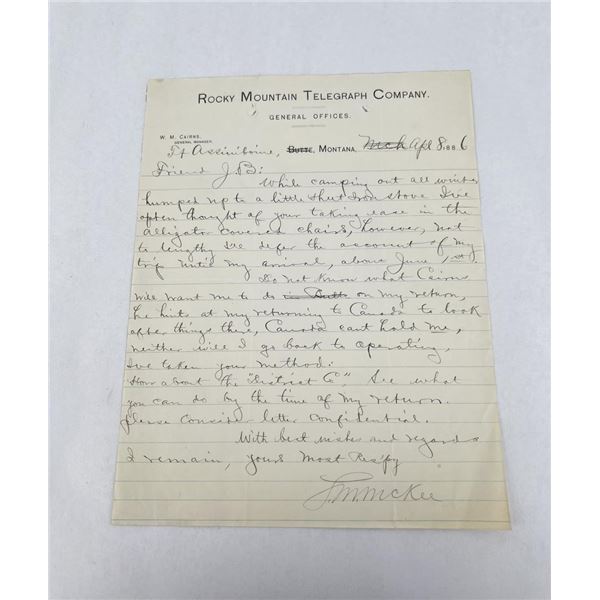 ROCKY MOUNTAIN TELEGRAPH COMPANY.
GENERAL OFFICES.
W. M. CAIRNS,
GENERAL MANAGER.
Ft Assiniboine, BUTTE, MONTANA, Mch Apl 8, 1886
Friend J.B:
While camping out all winter
humped up to a little sheet iron stove I've
often thought of your taking ease in the
alligator covered chairs, however, not
to lengthy I'll defer the account of my
trip until my arrival, above June 1st.
Do not know what Cairns
will want me to do in Butte on my return,
he hints at my returning to Canada to look
after things there, Canada cant hold me,
neither will I go back to operating,
I've taken your method:
How about the "District C", See what
you can do by the time of my return.
please consider letter confidential.
With best wishes and regards
I remain, yours most Resp'y
McKee